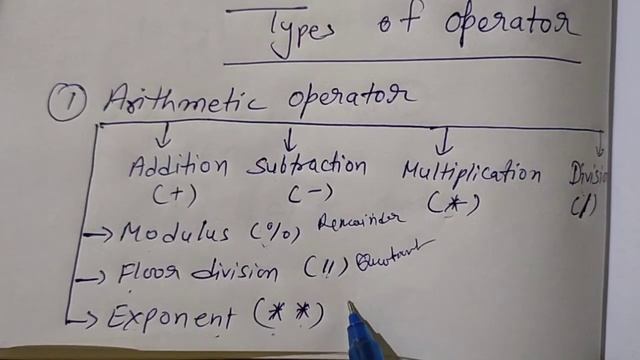 Types of operator
① Arithmetic operator
Addition Subtraction Multiplication Division
(+) (-) (*) (/)
→ Modulus (%) Remainder
→ Floor division (//)
→ Exponent (**)